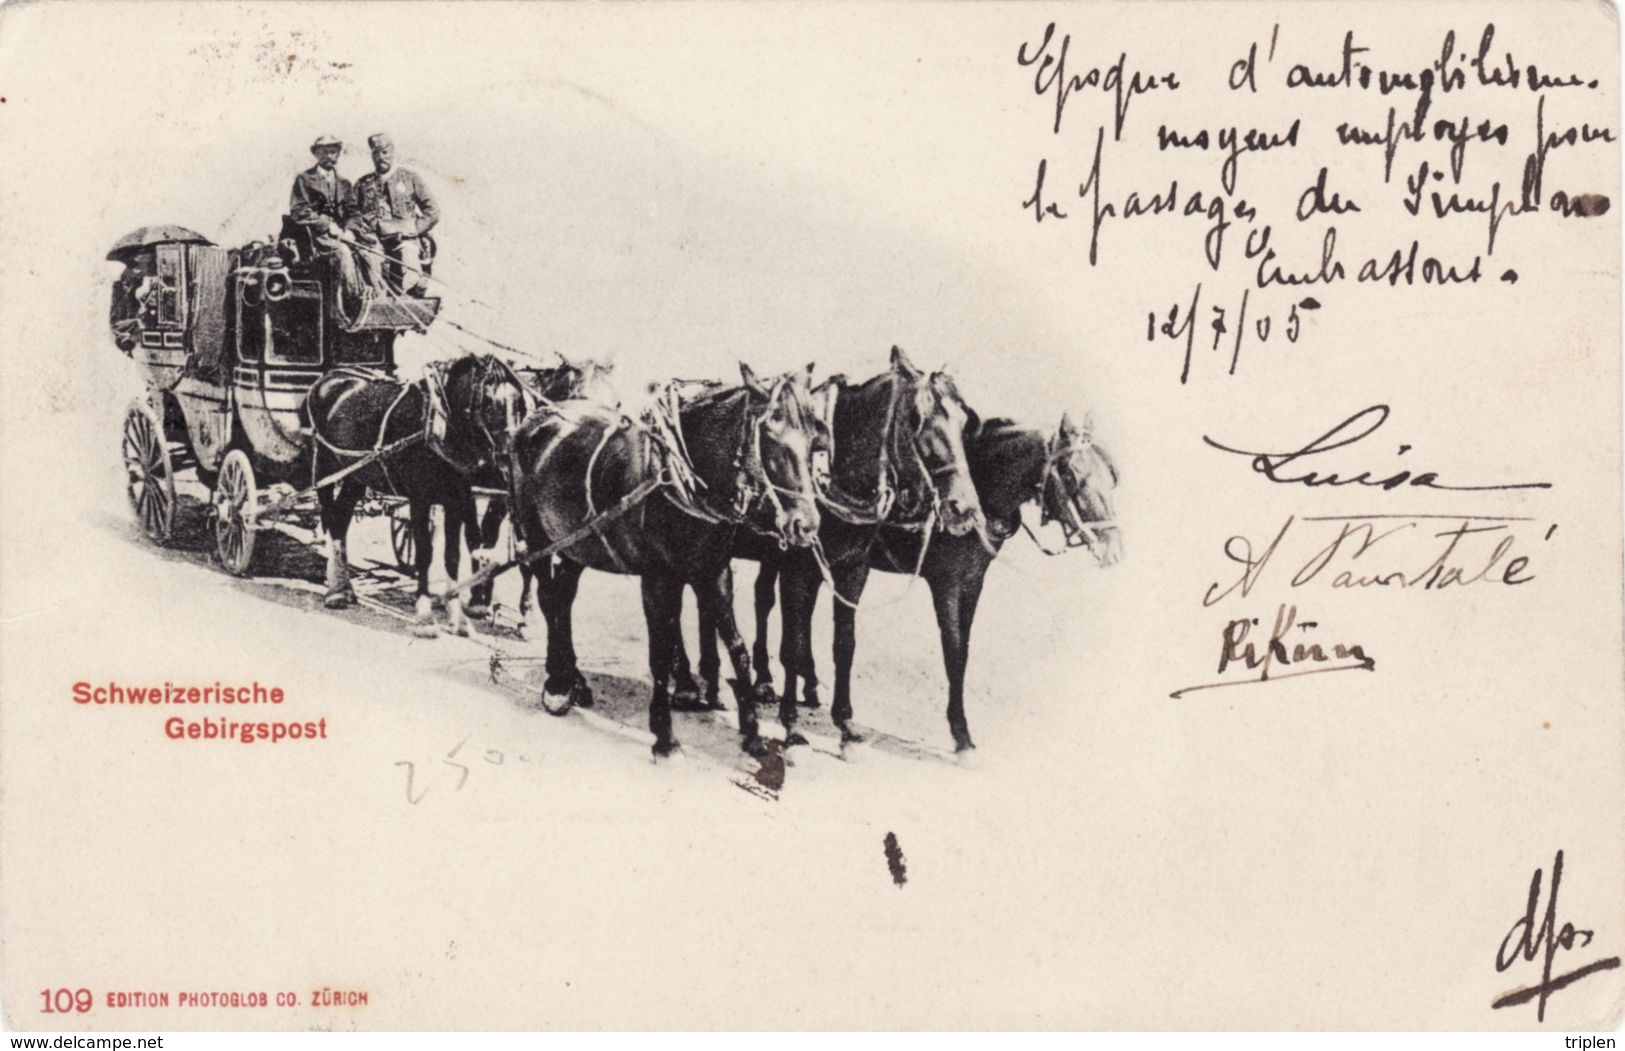 Epoque d'automobilisme.
moyens employés pour
le passage du Simplon
Embrassons.
12/7/05
Luisa
A
Riküm
Schweizerische
Gebirgspost
250
109 EDITION PHOTOGLOB CO. ZÜRICH
www.delcampe.net
triplen